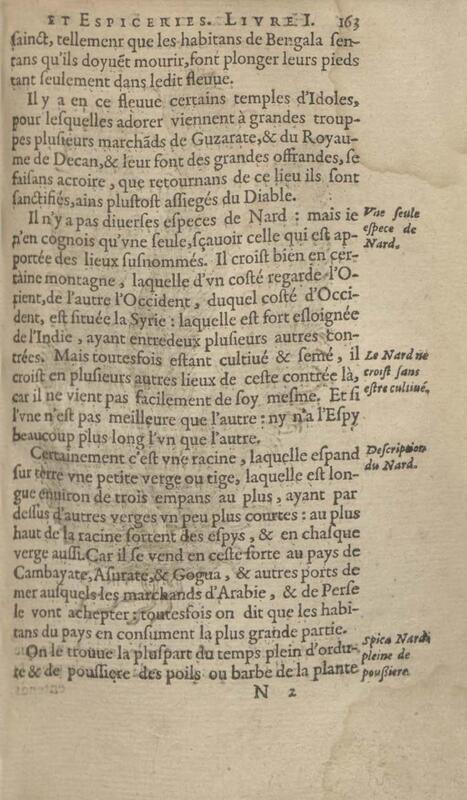 ET ESPICERIES. LIVRE I. 163
sainct, tellement que les habitans de Bengala sen-
tans qu'ils doyuẽt mourir, font plonger leurs pieds
tant seulement dans ledit fleuue.
Il y a en ce fleuue certains temples d'Idoles,
pour lesquelles adorer viennent à grandes troup-
pes plusieurs marchãds de Guzarate, & du Royau-
me de Decan, & leur font des grandes offrandes, se
faisans acroire, que retournans de ce lieu ils sont
sanctifiés, ains plustost assiegés du Diable.
Il n'y a pas diuerses especes de Nard : mais ie
n'en cognois qu'vne seule, sçauoir celle qui est ap-
portée des lieux susnommés. Il croist bien en cer-
taine montagne, laquelle d'vn costé regarde l'O-
rient, de l'autre l'Occident, duquel costé d'Occi-
dent, est située la Syrie : laquelle est fort esloignée
de l'Indie, ayant entredeux plusieurs autres con-
trées. Mais toutesfois estant cultiué & semé, il
croist en plusieurs autres lieux de ceste contrée là,
car il ne vient pas facilement de soy mesme. Et si
l'vne n'est pas meilleure que l'autre : ny n'a l'Espy
beaucoup plus long l'vn que l'autre.
Certainement c'est vne racine, laquelle espand
sur terre vne petite verge ou tige, laquelle est lon-
gue enuiron de trois empans au plus, ayant par
dessus d'autres verges vn peu plus courtes : au plus
haut de la racine sortent des espys, & en chasque
verge aussi. Car il se vend en ceste sorte au pays de
Cambayate, Asurate, & Gogua, & autres ports de
mer ausquels les marchands d'Arabie, & de Perse
le vont achepter : toutesfois on dit que les habi-
tans du pays en consument la plus grande partie.
On le trouue la pluspart du temps plein d'ordu-
re & de poussiere des poils ou barbe de la plante
N 2
Vne seule
espece de
Nard.
Le Nard ne
croist sans
estre cultiué.
Description
du Nard.
spica Nardi
pleine de
poussiere.